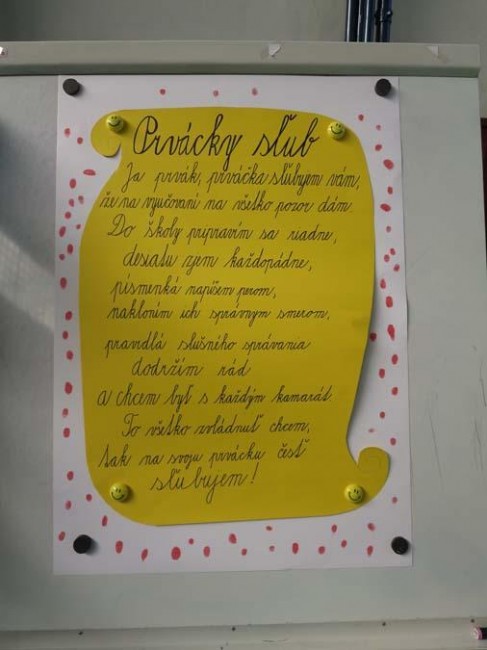 Prvácky sľub
Ja prvák, prváčka sľubujem vám,
že na vyučovaní na všetko pozor dám.
Do školy pripravím sa riadne,
desiatu zjem každopádne,
písmenká napíšem perom,
nakloním ich správnym smerom,
pravidlá slušného správania
dodržím rád
a chcem byť s každým kamarát.
To všetko zvládnuť chcem,
tak na svoju prvácku česť
sľubujem!